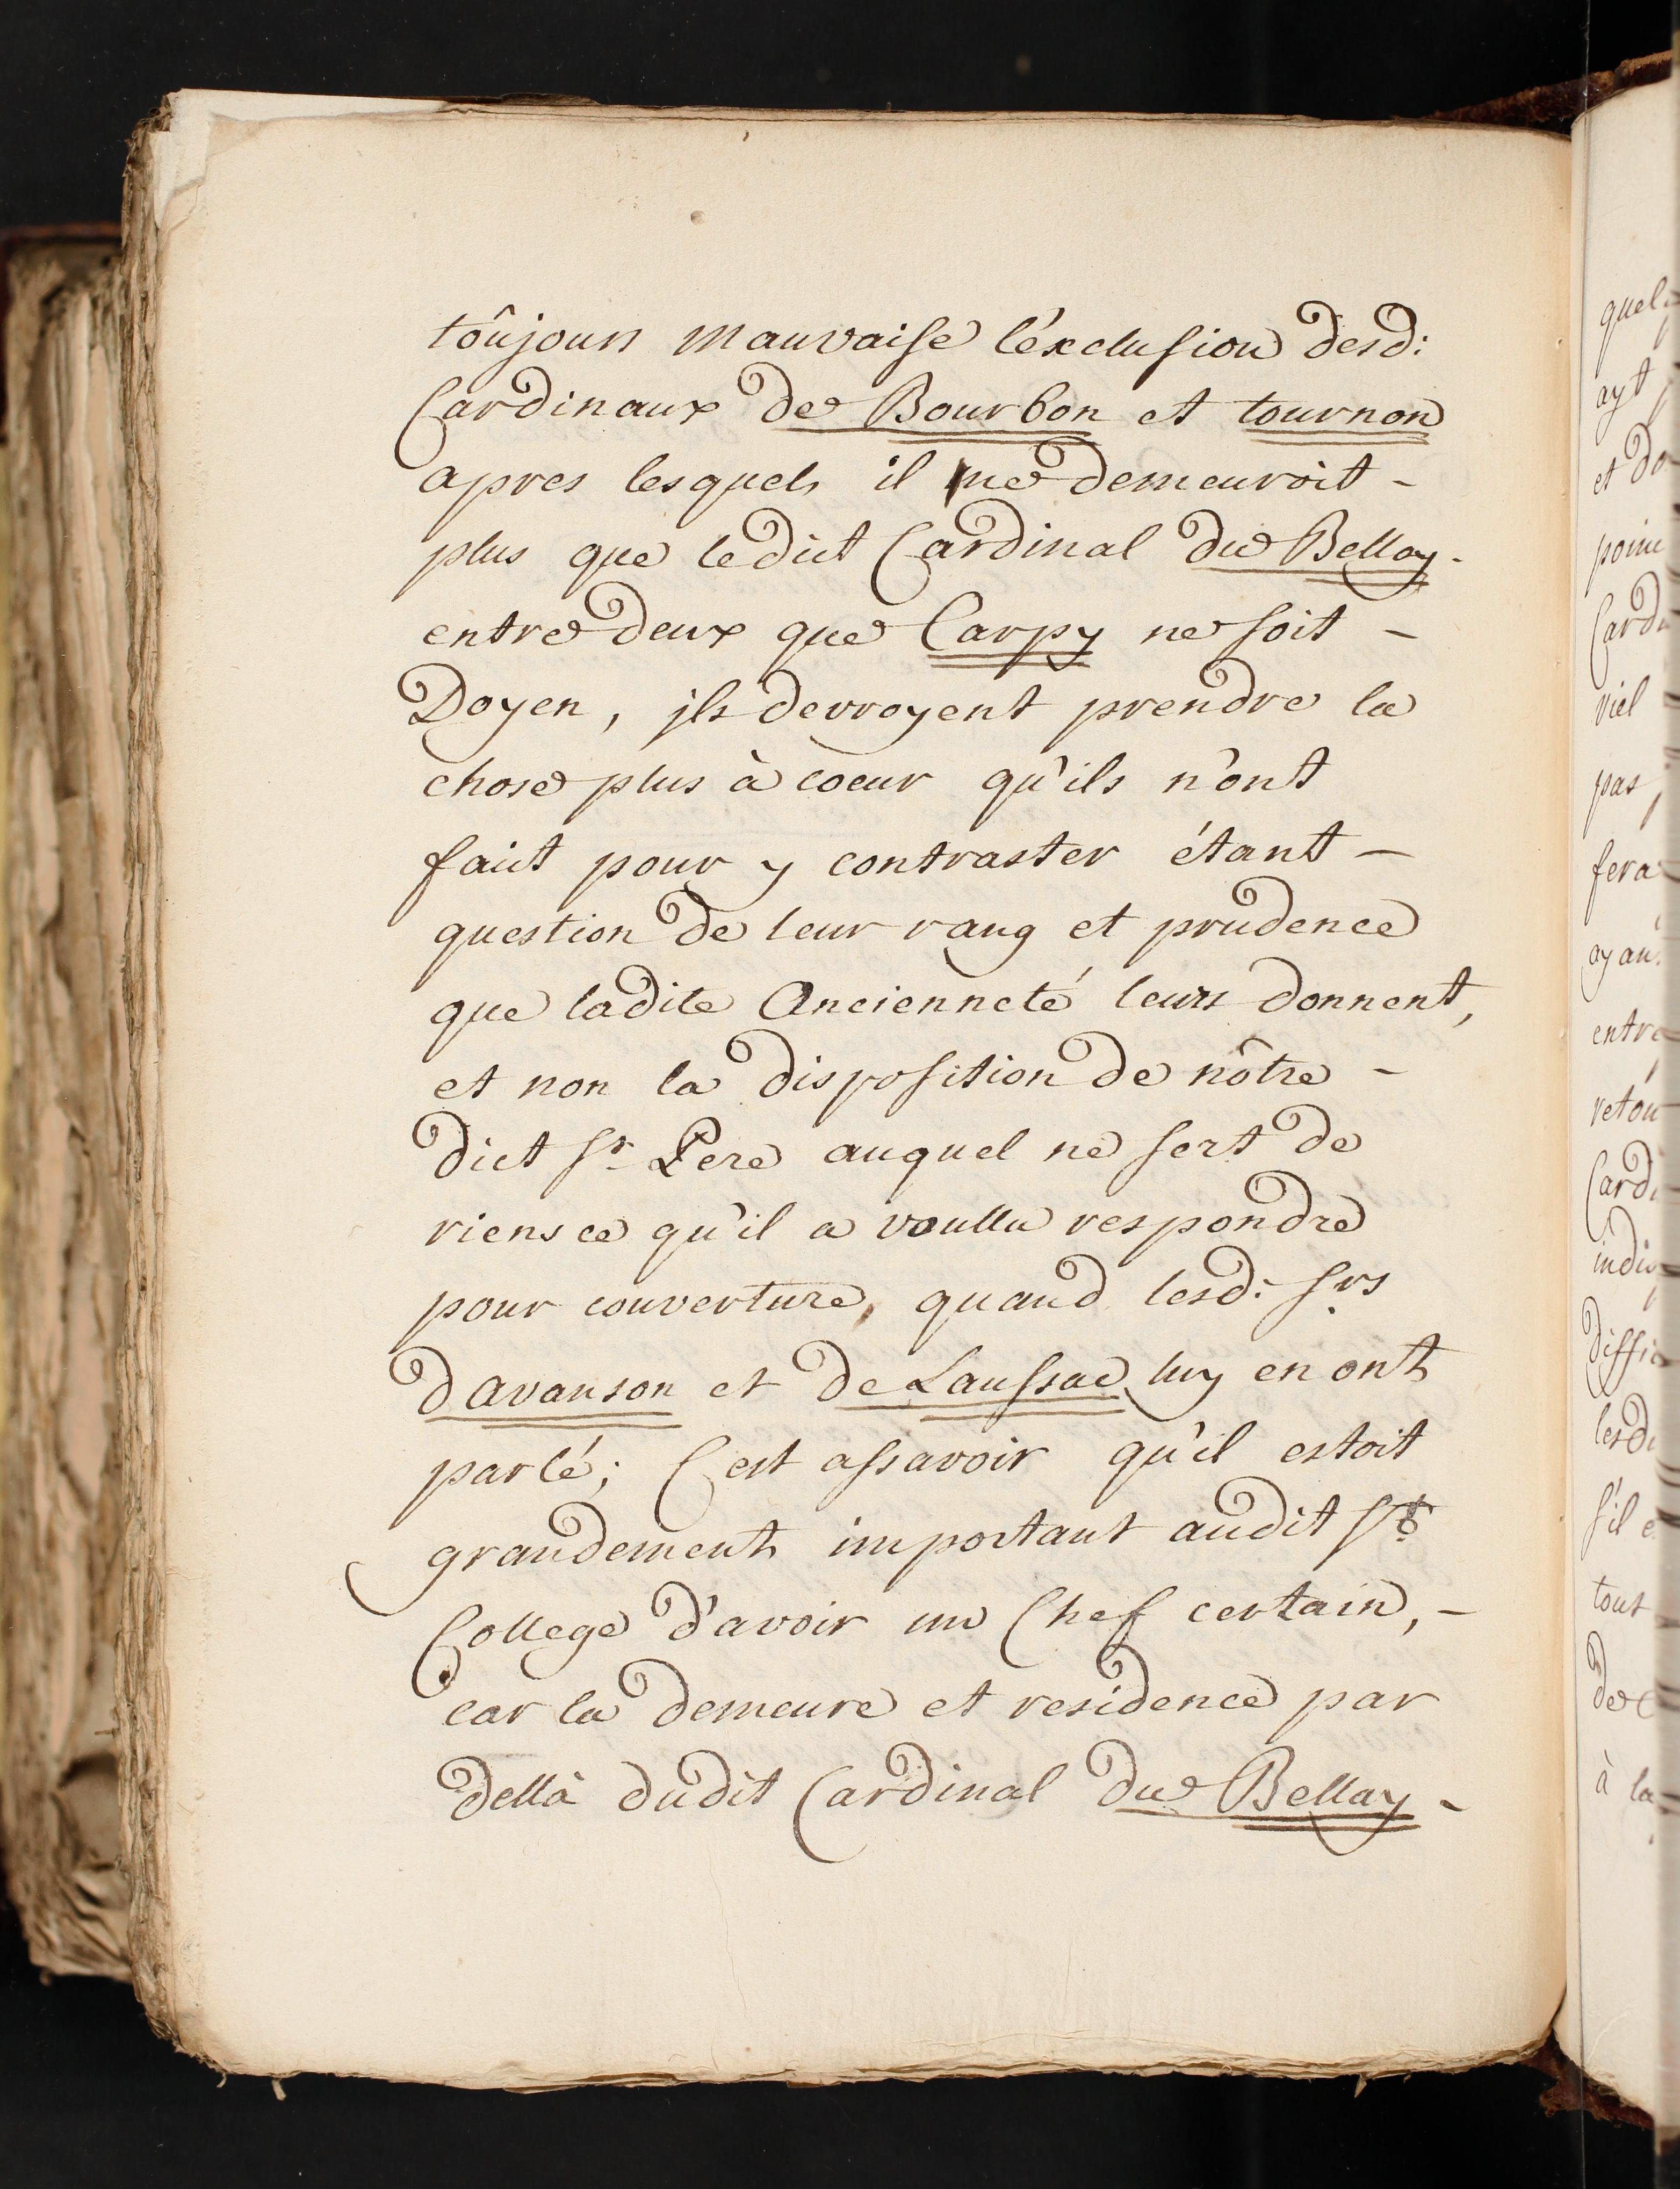 toûjours mauvaise l'éxclusion desd:
Cardinaux de Bourbon et tournon
apres lesquels il ne demeuroit -
plus que ledict Cardinal du Bellay -
entre deux que Carpy ne soit -
Doyen, ils devroyent prendre la
chose plus à coeur qu'ils n'ont
faict pour y contraster étant -
question de leur rang et prudence
que ladite Ancienneté leurs donnent,
et non la disposition de nôtre -
dict St Pere auquel ne sert de
riens ce qu'il a voullu respondre
pour couverture, quand lesd: Srs
davanson et de Laussac luy en ont
parlé; C'est assavoir qu'il estoit
grandement important audit St
College d'avoir un Chef certain, -
car la demeure et residence par
dellà dudit Cardinal du Bellay -
quel
ayt
et do
Card
viel
pas
fera
ayan
entre
retou
Card
indis
diffic
lesd
s'il e
tout
de
à la